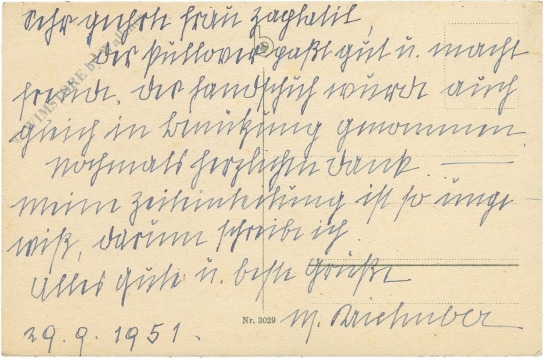 Sehr geehrte Frau Zaplatil,
der Pullover paßt gut u. macht
Freude. Der Handschuh wurde auch
gleich in Benützung genommen
Nochmals herzlichen Dank
Meine Zeiteinteilung ist so unge
wiß, darum schreibe ich.
Alles Gute u. beste Grüße
Nr. 3029
M.
29.9.1951.